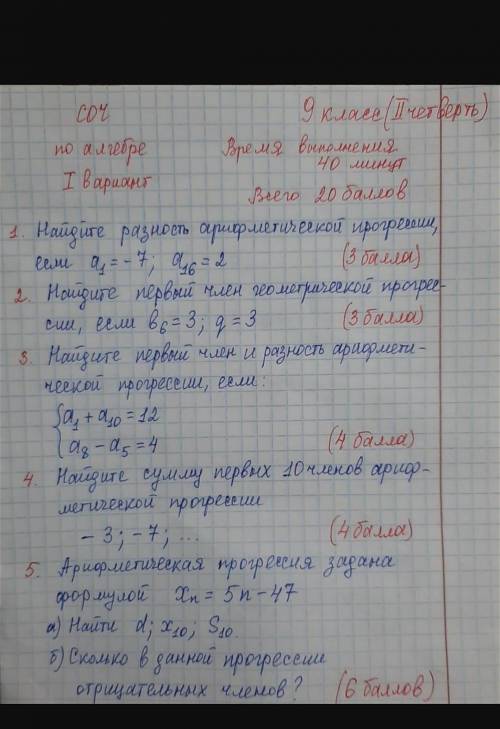 СОЧ 9 класс (II четверть)
по алгебре Время выполнения
40 минут
I вариант Всего 20 баллов
1. Найдите разность арифметической прогрессии,
если a₁ = - 7; a₁₆ = 2 (3 балла)
2. Найдите первый член геометрической прогрес-
сии, если b₆ = 3; q = 3 (3 балла)
3. Найдите первый член и разность арифмети-
ческой прогрессии, если:
{a₁ + a₁₀ = 12
{a₈ - a₅ = 4 (4 балла)
4. Найдите сумму первых 10 членов ариф-
метической прогрессии
- 3; - 7; ... (4 балла)
5. Арифметическая прогрессия задана
формулой xₙ = 5n - 47
а) Найти d; x₁₀; S₁₀.
б) Сколько в данной прогрессии
отрицательных членов? (6 баллов)